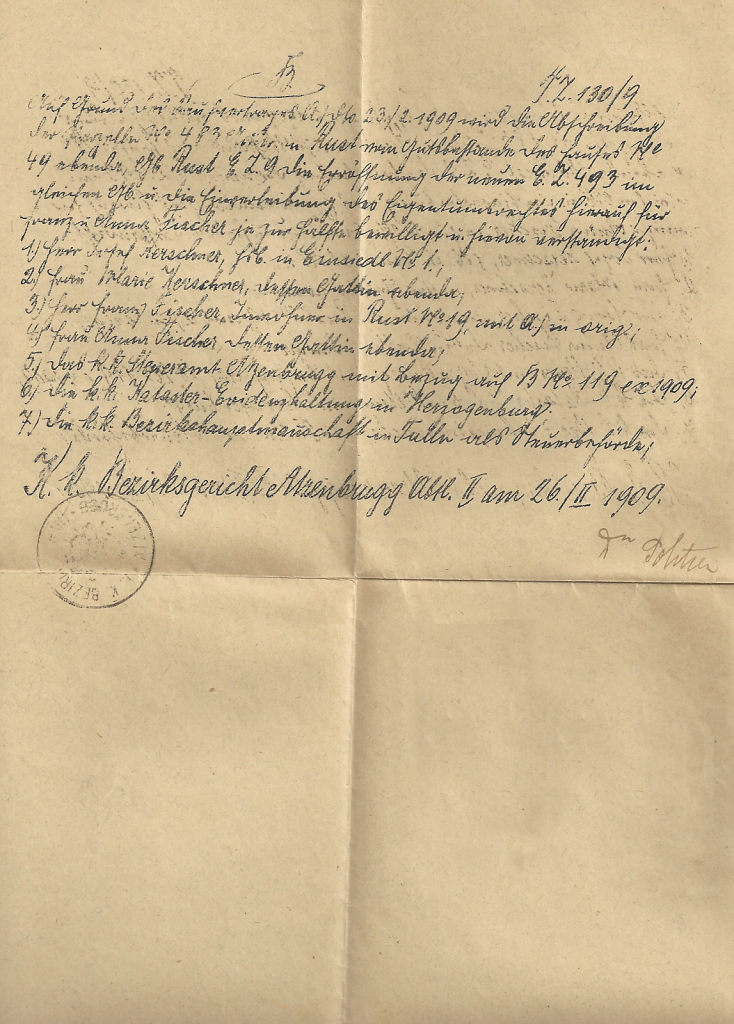 T.Z. 130/9
Auf Grund des Kaufvertrages A./ dto 23./2. 1909 wird die Abschreibung
der Parzelle No 483 in Rust vom Gutsbestande des Hauses No
49 ebenda, Gb. Rust E.Z. 9 die Eröffnung der neuen E.Z. 493 im
gleichen Gb. u. die Einverleibung des Eigentumsrechtes hierauf für
Franz u. Anna Fischer je zur Hälfte bewilligt u. hievon verständigt:
1.) Herr Josef Kerschner, Hsb. in Einsiedl No 1.;
2.) Frau Marie Kerschner, dessen Gattin ebenda;
3.) Herr Franz Fischer, Inwohner in Rust No 19, mit A./ in orig.;
4.) Frau Anna Fischer dessen Gattin ebenda;
5.) Das k.k. Steueramt Atzenbrugg mit Bezug auf B No 119 ex 1909;
6.) Die k.k. Kataster-Evidenzhaltung in Herzogenburg.
7.) Die k.k. Bezirkshauptmannschaft in Tulln als Steuerbehörde;
K. k. Bezirksgericht Atzenbrugg Abtl. II am 26./II 1909.
Dr
K. K. BEZIRKS